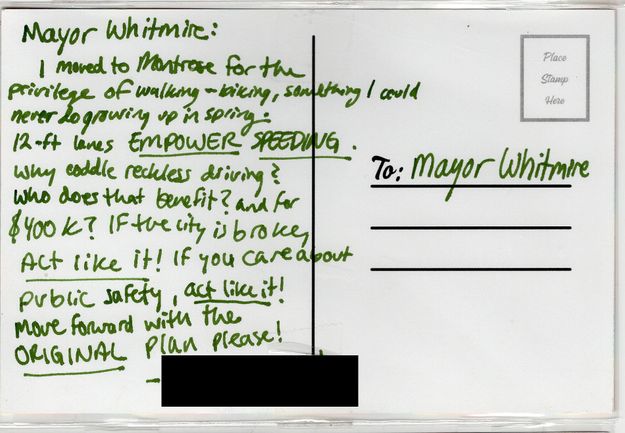 Mayor Whitmire:
I moved to Montrose for the
privilege of walking + biking, something I could
never do growing up in spring.
12-ft lanes EMPOWER SPEEDING.
why coddle reckless driving?
who does that benefit? and for
$400K? IF the city is broke,
Act like it! If you care about
public safety, act like it!
move forward with the
ORIGINAL plan please!
-
Place
Stamp
Here
To: Mayor Whitmire